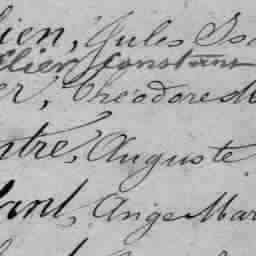 ien, Jules Is
lier Constant
er, Théodore M
ntre, Auguste
lant, Ange Mar